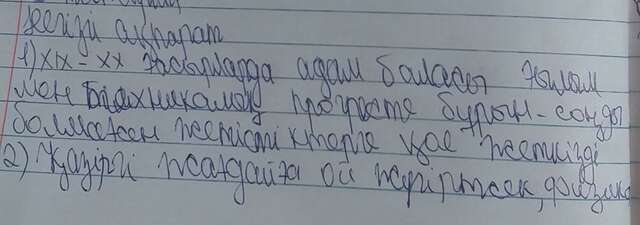 негізгі ақпарат
1) XIX - XX ғасырларда адам баласы ғылым
мен техникалық прогресте бұрын - соңды
болмаған жетістіктерге қол жеткізді
2) Қазіргі жағдайға ой жүгіртсек, физика